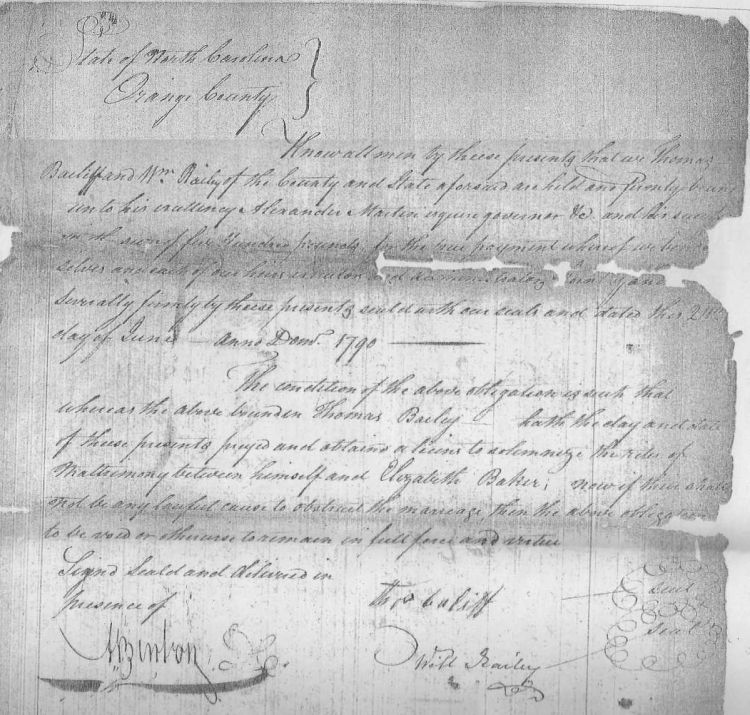 State of North Carolina
Orange County
Know all men by these presents that we Thomas
Bailiff and Wm Bailey of the County and State aforsaid are held and firmly
unto his excellency Alexander Martin esquire governor &c and his
in the sum of five hundred pounds for the true payment whereof we
selves and each of our heirs and
severally firmly by these presents seald with our seals and dated this
day of June Anno Dom. 1790
The condition of the above obligation is such that
whereas the above bounden Thomas Bailey hath the day and date
of these presents prayd and obtaind a licens to solemnize the rites of
Mattrimony between himself and Elizabeth Baker; now if their shall
not be any lawful cause to obstruct the marriage then the above obligation
to be void or otherwise to remain in full force and virtue
Signd Seald and delivered in
presence of
Thos baliff seal
A Benton
Will Bailey seal